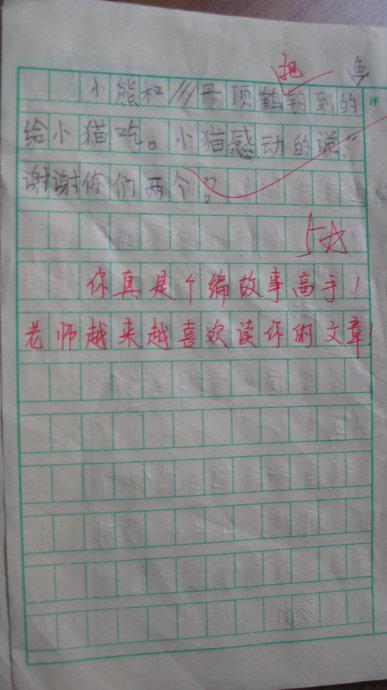 把 鱼
小熊和丹顶鹤钓到的
给小猫吃。小猫感动的说:“
谢谢你们两个。
5☆
你真是个编故事高手!
老师越来越喜欢读你的文章!